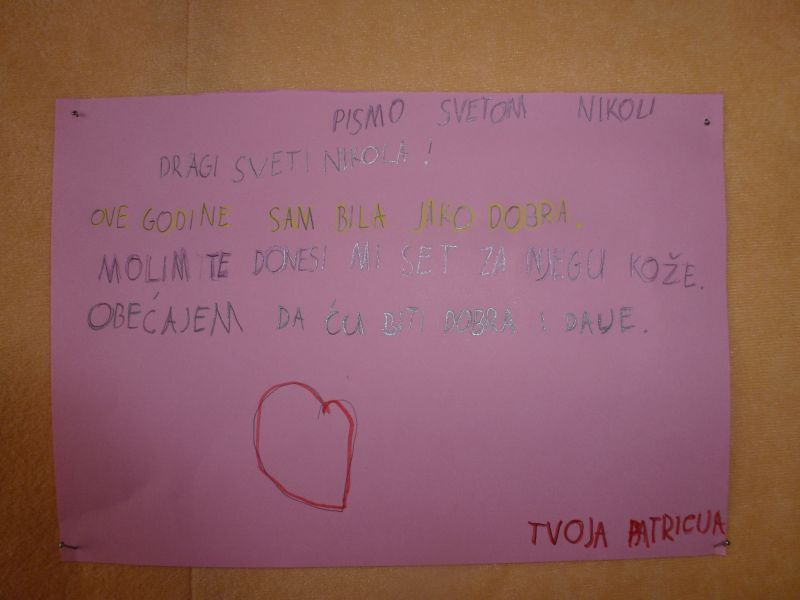 PISMO SVETOM NIKOLI
DRAGI SVETI NIKOLA!
OVE GODINE SAM BILA JAKO DOBRA.
MOLIM TE DONESI MI SET ZA NJEGU KOŽE.
OBEĆAJEM DA ĆU BITI DOBRA I DALJE.
TVOJA PATRICIJA